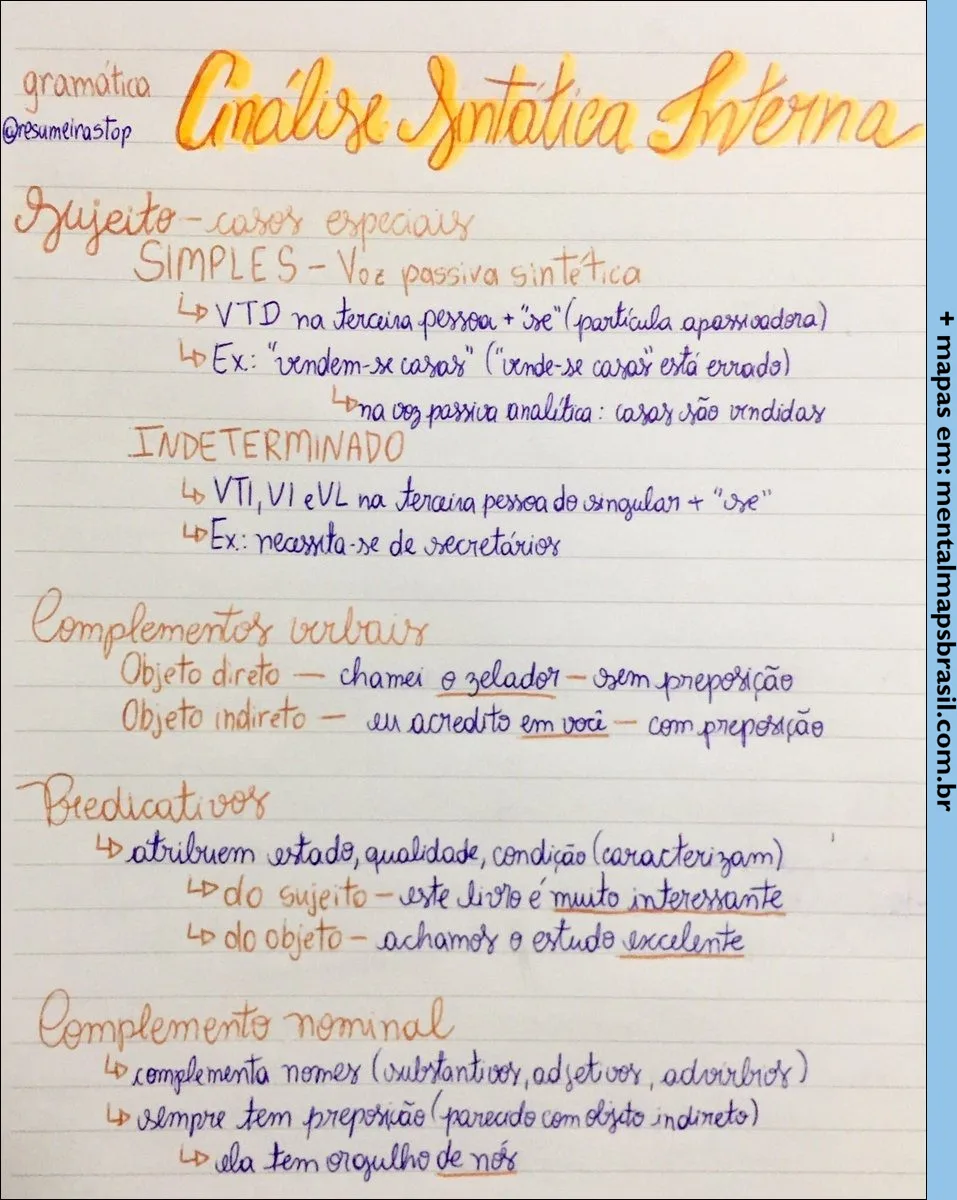 gramática
@resumeirastop
Análise Sintática Interna
Sujeito - casos especiais
SIMPLES - Voz passiva sintética
↳ VTD na terceira pessoa + "se" (partícula apassivadora)
↳ Ex.: "vendem-se casas" ("vende-se casas" está errado)
↳ na voz passiva analítica: casas são vendidas
INDETERMINADO
↳ VTI, VI e VL na terceira pessoa do singular + "se"
↳ Ex.: necessita-se de secretários
Complementos verbais
Objeto direto — chamei o zelador — sem preposição
Objeto indireto — eu acredito em você — com preposição
Predicativos
↳ atribuem estado, qualidade, condição (caracterizam)
↳ do sujeito - este livro é muito interessante
↳ do objeto - achamos o estudo excelente
Complemento nominal
↳ complementa nomes (substantivos, adjetivos, advérbios)
↳ sempre tem preposição (parecido com objeto indireto)
↳ ela tem orgulho de nós
+ mapas em: mentalmapsbrasil.com.br